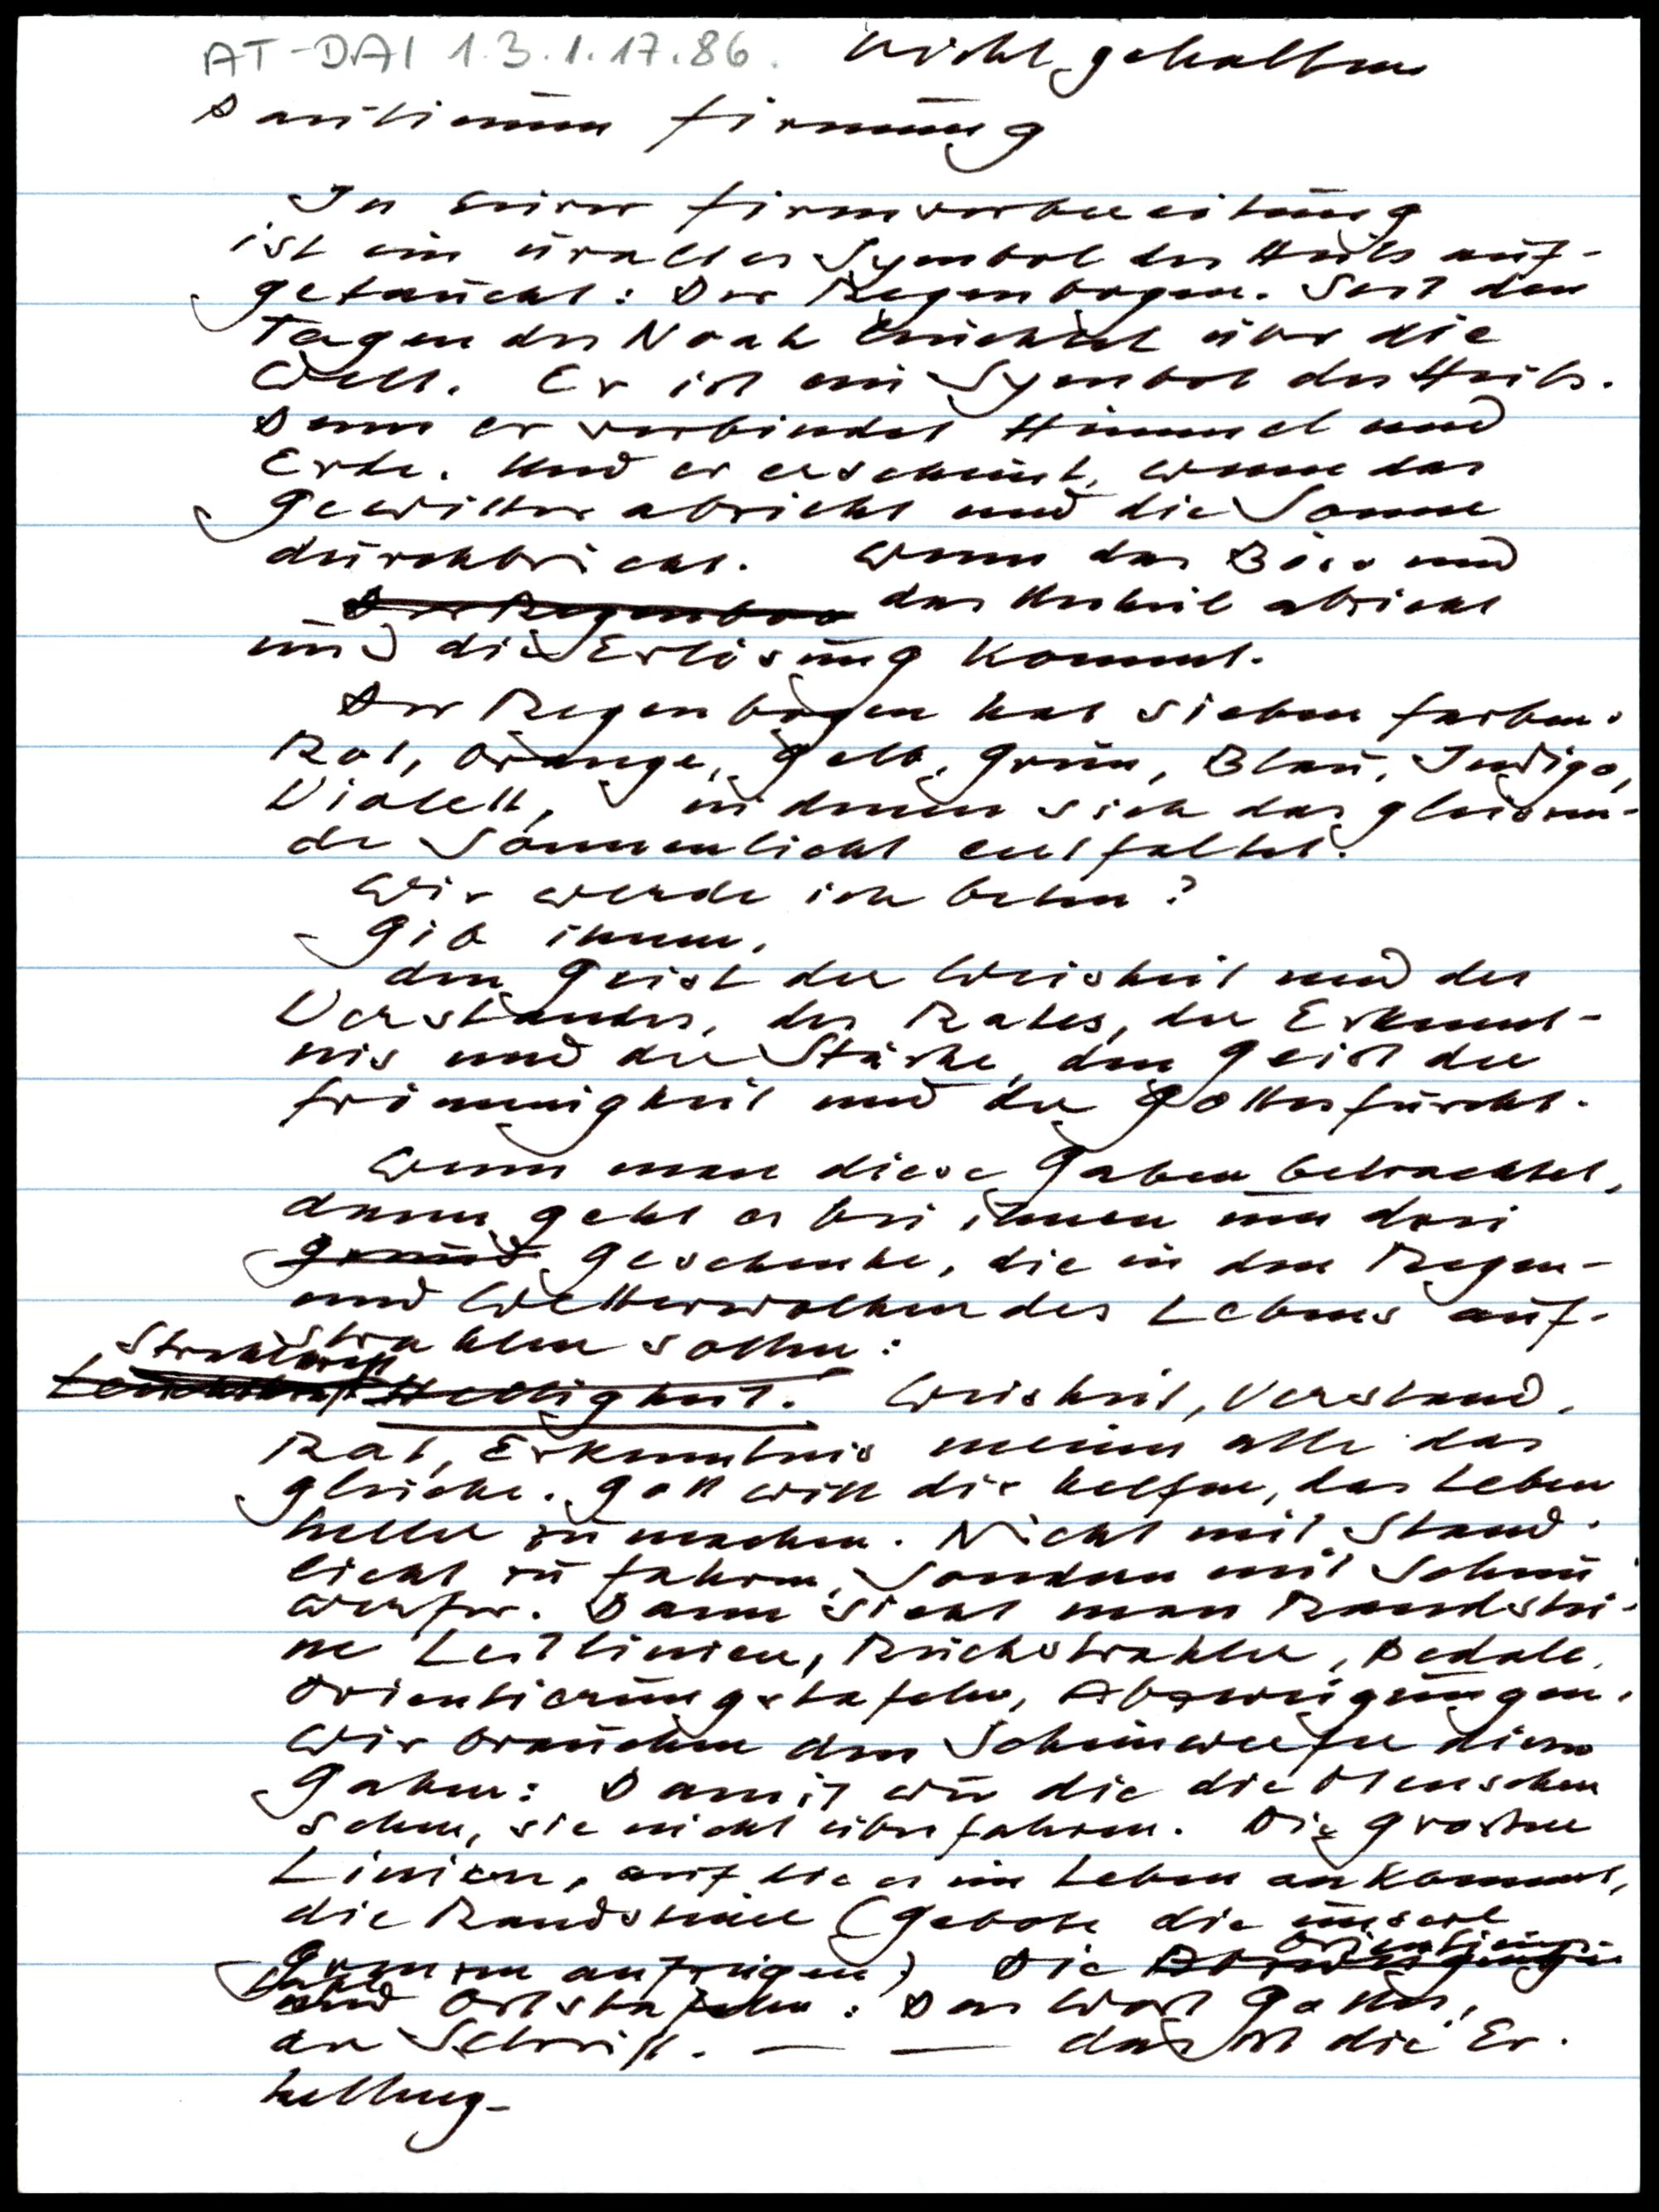 AT-DAI 1.3.1.17.86. nicht gehalten
Firmung
In Eurer Firmvorbereitung
ist ein uraltes Symbol des Heils auf-
getaucht: Der Regenbogen. Seit den
Tagen des Noah leuchtet über die
Welt. Er ist ein Symbol des Heils.
Denn er verbindet Himmel und
Erde. Und er erscheint, wenn das
Gewitter abzieht und die Sonne
durchbricht. Wenn das Böse und
Der Regenbog das Unheil abzieht
und die Erlösung kommt.
Der Regenbogen hat sieben Farben:
Rot, Orange, Gelb, Grün, Blau, Indigo,
Violett, in denen sich das gleissen-
de Sonnenlicht entfaltet.
Wie werde ich beten?
Gib ihnen,
den Geist der Weisheit und des
Verstandes, des Rates, der Erkennt-
nis und der Stärke, den Geist der
Frömmigkeit und der Gottesfurcht.
Wenn man diese Gaben betrachtet,
dann geht es bei ihnen um drei
Geschenke, die in den Regen-
und Wetterwolken des Lebens auf-
strahlen sollen:
Helligkeit. Weisheit, Verstand,
Rat, Erkenntnis meinen alle das
gleiche. Gott will dir helfen, das Leben
heller zu machen. Nicht mit Stand-
licht zu fahren, sondern mit Schein-
werfer. Dann sieht man Randstei-
ne Leitlinien, Rückstrahler, Pedale,
Orientierungstafeln, Abzweigungen.
Wir brauchen den Scheinwerfer dieser
Gaben: Damit wir die die Menschen
sehen, sie nicht überfahren. Die grossen
Linien, auf die es im Leben ankommt,
die Randsteine (Gebote die unsere
Grenzen aufzeigen) Die Orientierungs-
und Ortstafeln: Das Wort Gottes,
der Schrift. — — das ist die Er-
hellung-